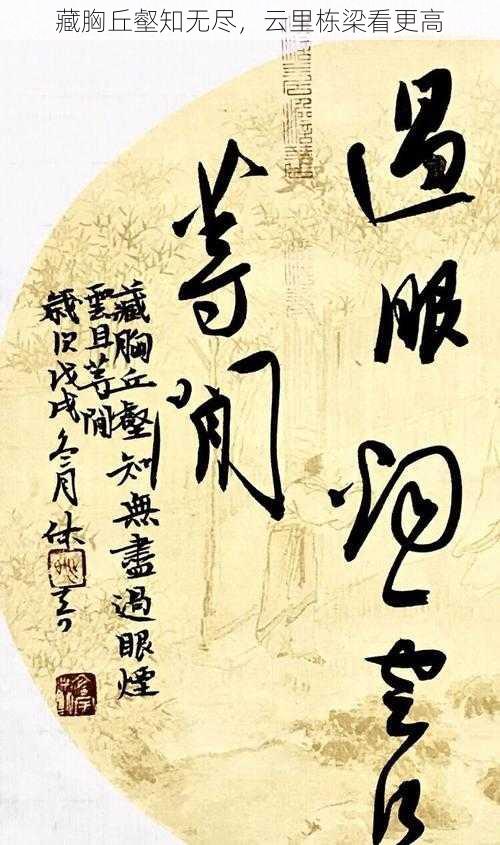 藏胸丘壑知无尽，云里栋梁看更高
過眼烟雲且
等閒
藏胸丘壑知無盡過眼煙
雲且等閒
歲次戊戌冬月